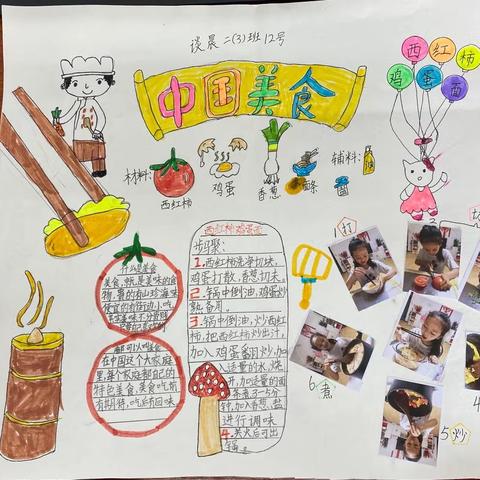 谈晨 二(3)班 12号
中国美食
西红柿
鸡蛋面
材料:
西红柿
鸡蛋
香葱
面条
辅料:
油
盐
什么是美食
美食,就是美味的食
物,贵的有山珍海味,
便宜的有街边小吃,
都可以叫美食
在中国这个大家庭
里,每个家庭都有自己的
特色美食,美食吃前
有期待,吃后有回味
西红柿鸡蛋面
步骤:
1.西红柿洗净切块,
鸡蛋打散,香葱切末。
2.锅中倒油,鸡蛋炒
熟备用。
3.锅中倒油,炒西红
柿,把西红柿炒出汁,
加入鸡蛋翻炒,加
入适量的水,烧
开,加适量的面
条煮3-5分
钟,加入香葱、盐
进行调味
4.关火后可出
锅。
1打
4
5炒
6煮